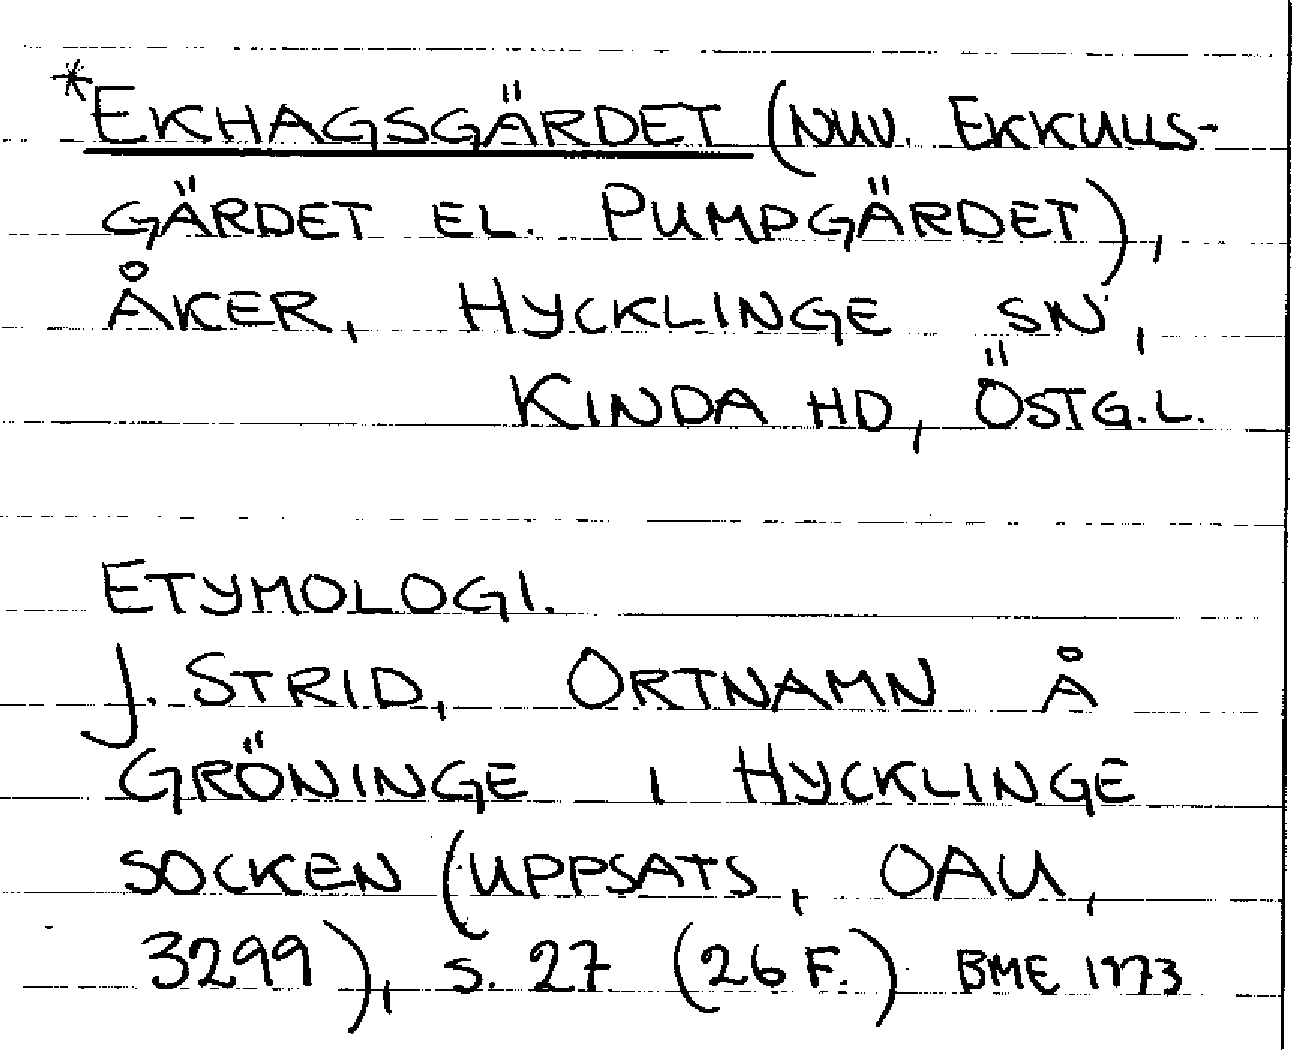 *EKHAGSGÄRDET (NUV. EKKULLS-
GÄRDET EL. PUMPGÄRDET),
ÅKER, HYCKLINGE SN,
KINDA HD, ÖSTG.L.
ETYMOLOGI.
J. STRID, ORTNAMN Å
GRÖNINGE I HYCKLINGE
SOCKEN (UPPSATS, OAU,
3299), S. 27 (26 F.) BME 1973